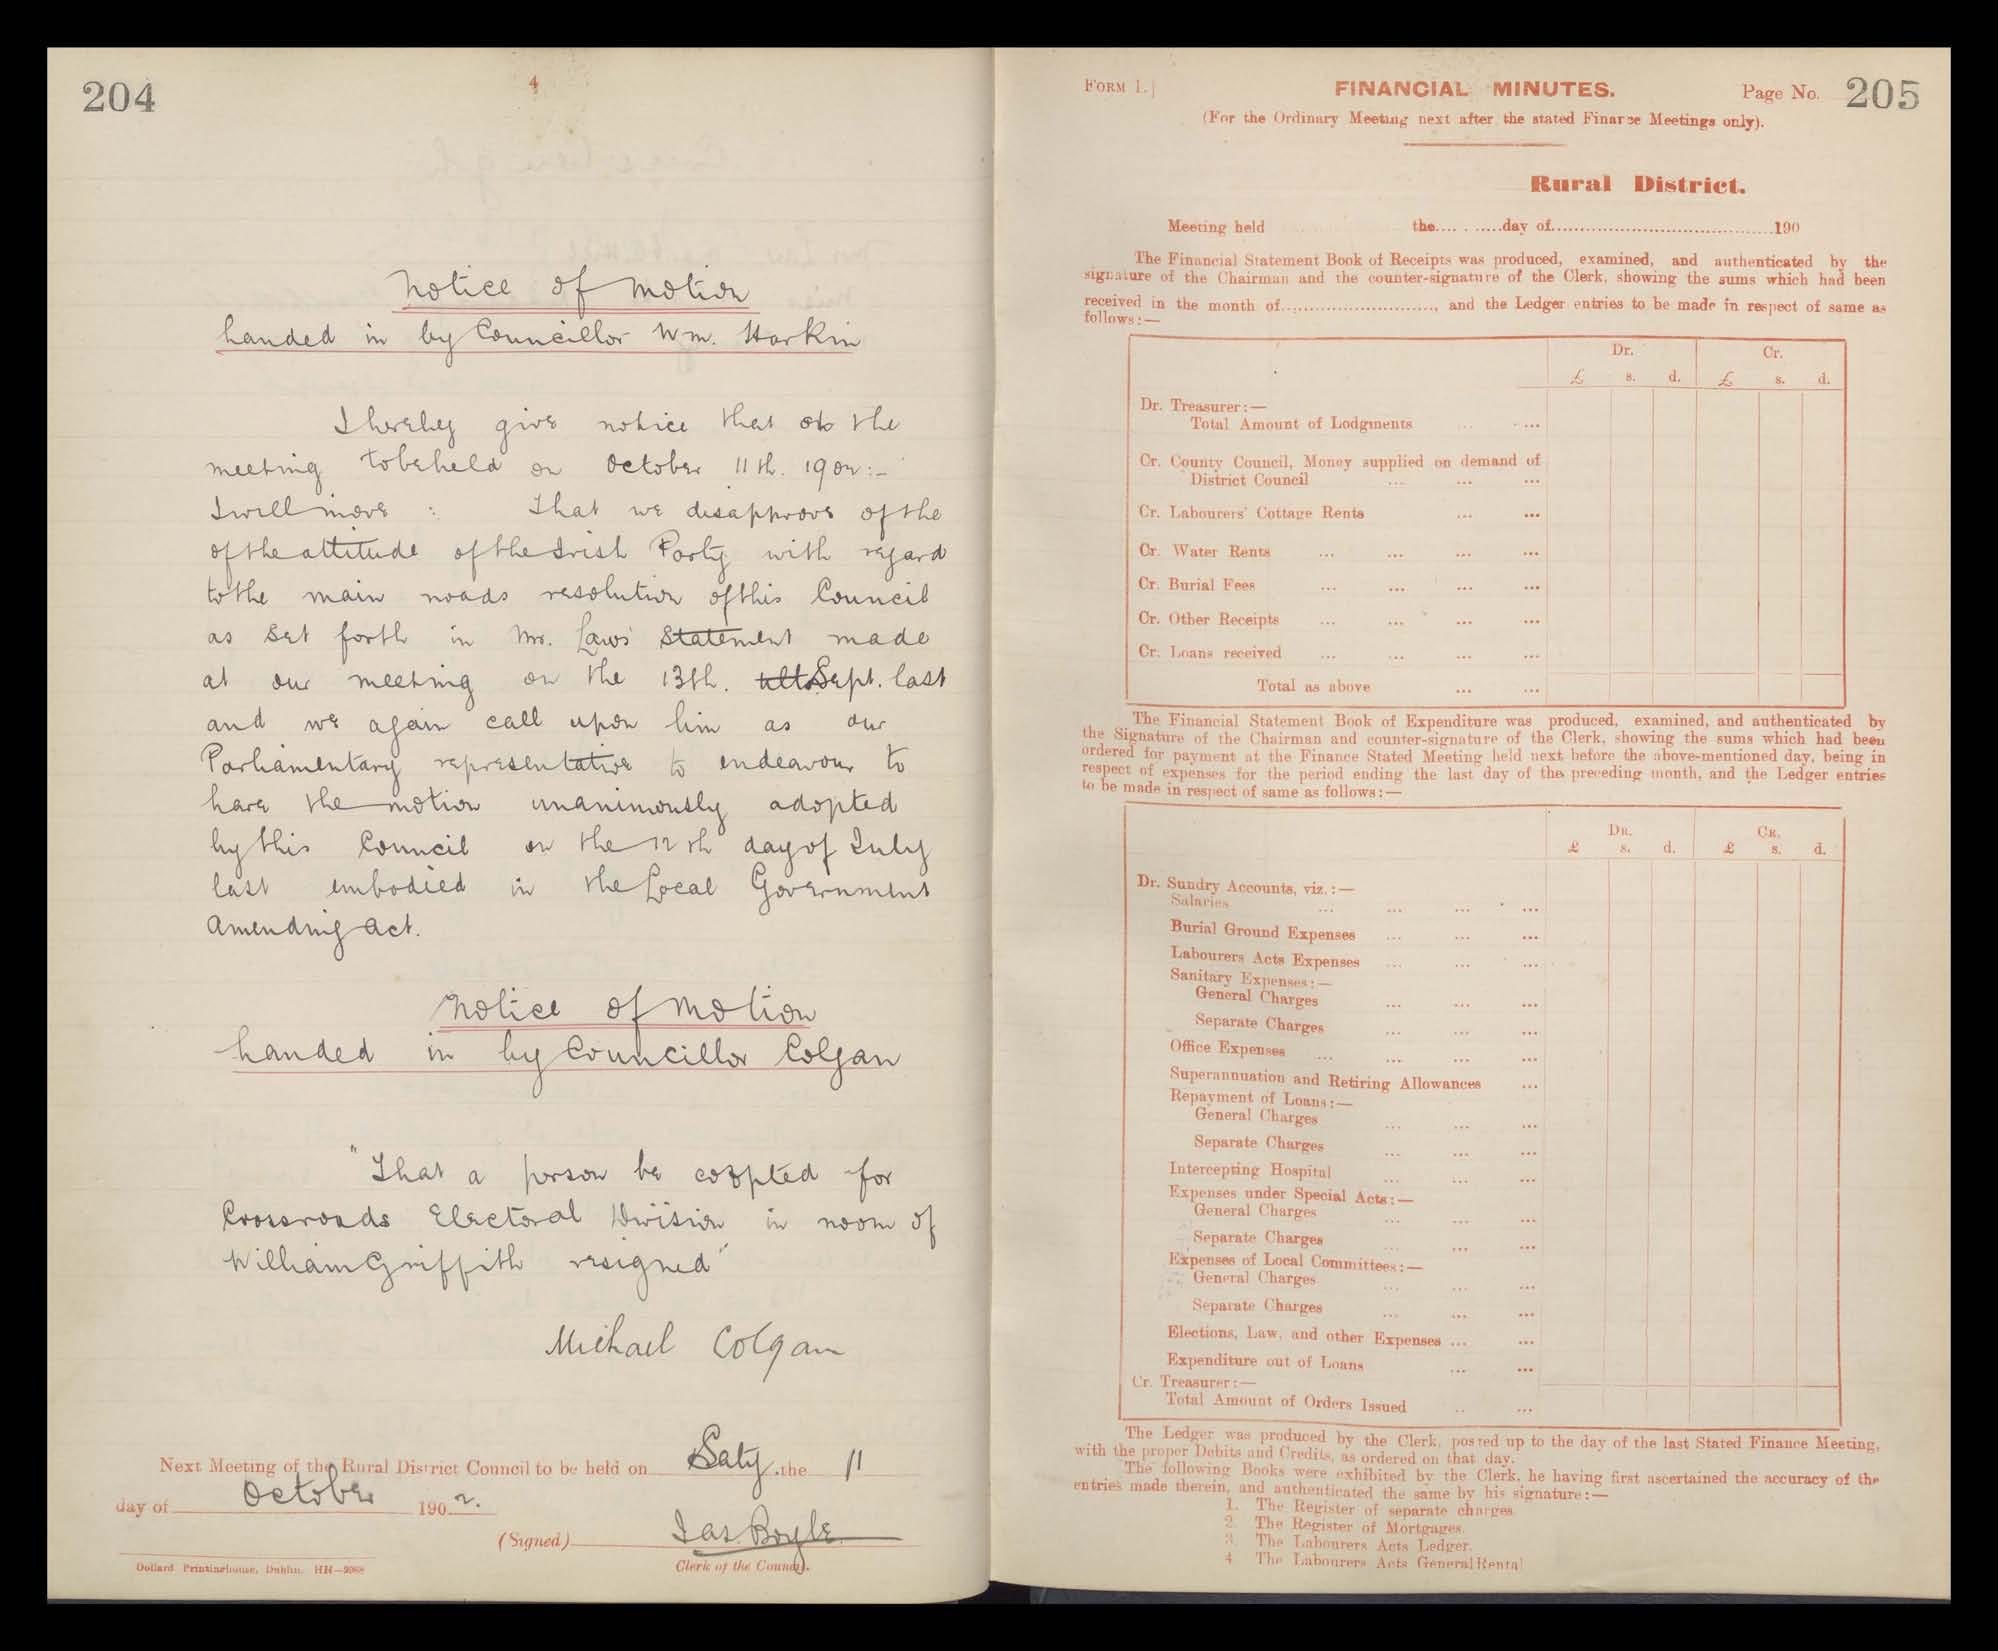 204
4
Notice of Motion
handed in by Councillor Wm. Harkin
I hereby give notice that at the
meeting to be held on October 11th. 1902:-
I will move : That we disapprove of the
of the attitude of the Irish Party with regard
to the main roads resolution of this Council
as set forth in Mr. Laws' statement made
at our meeting on the 13th. ulto Sept. last
and we again call upon him as our
Parliamentary representative to endeavour to
have the motion unanimously adopted
by this Council on the 12th day of July
last embodied in the Local Government
Amending Act.
Notice of Motion
handed in by Councillor Colgan
"That a person be coopted for
Crossroads Electoral Division in room of
William Griffith resigned"
Michael Colgan
Next Meeting of the Rural District Council to be held on Saty. the 11
day of October 1902.
(Signed) Jas. Boyle
Clerk of the Council.
Dollard Printinghouse, Dublin. HH—9068
FORM 1.]
FINANCIAL MINUTES.
Page No. 205
(For the Ordinary Meeting next after the stated Finance Meetings only).
Rural District.
Meeting held the........day of........................................190
The Financial Statement Book of Receipts was produced, examined, and authenticated by the
signature of the Chairman and the counter-signature of the Clerk, showing the sums which had been
received in the month of..........................., and the Ledger entries to be made in respect of same as
follows:—
Dr. Cr.
£ s. d. £ s. d.
Dr. Treasurer:—
Total Amount of Lodgments ... ...
Cr. County Council, Money supplied on demand of
District Council ... ... ...
Cr. Labourers' Cottage Rents ... ...
Cr. Water Rents ... ... ... ...
Cr. Burial Fees ... ... ... ...
Cr. Other Receipts ... ... ... ...
Cr. Loans received ... ... ... ...
Total as above ... ...
The Financial Statement Book of Expenditure was produced, examined, and authenticated by
the Signature of the Chairman and counter-signature of the Clerk, showing the sums which had been
ordered for payment at the Finance Stated Meeting held next before the above-mentioned day, being in
respect of expenses for the period ending the last day of the preceding month, and the Ledger entries
to be made in respect of same as follows:—
DR. CR.
£ s. d. £ s. d.
Dr. Sundry Accounts, viz.:—
Salaries ... ... ... ...
Burial Ground Expenses ... ... ...
Labourers Acts Expenses ... ... ...
Sanitary Expenses:—
General Charges ... ... ...
Separate Charges ... ... ...
Office Expenses ... ... ... ...
Superannuation and Retiring Allowances ...
Repayment of Loans:—
General Charges ... ... ...
Separate Charges ... ... ...
Intercepting Hospital ... ... ...
Expenses under Special Acts:—
General Charges ... ... ...
Separate Charges ... ... ...
Expenses of Local Committees:—
General Charges ... ... ...
Separate Charges ... ... ...
Elections, Law, and other Expenses ... ...
Expenditure out of Loans ... ...
Cr. Treasurer:—
Total Amount of Orders Issued ... ...
The Ledger was produced by the Clerk, posted up to the day of the last Stated Finance Meeting,
with the proper Debits and Credits, as ordered on that day.
The following Books were exhibited by the Clerk, he having first ascertained the accuracy of the
entries made therein, and authenticated the same by his signature:—
1. The Register of separate charges.
2. The Register of Mortgages.
3. The Labourers Acts Ledger.
4 The Labourers Acts General Rental